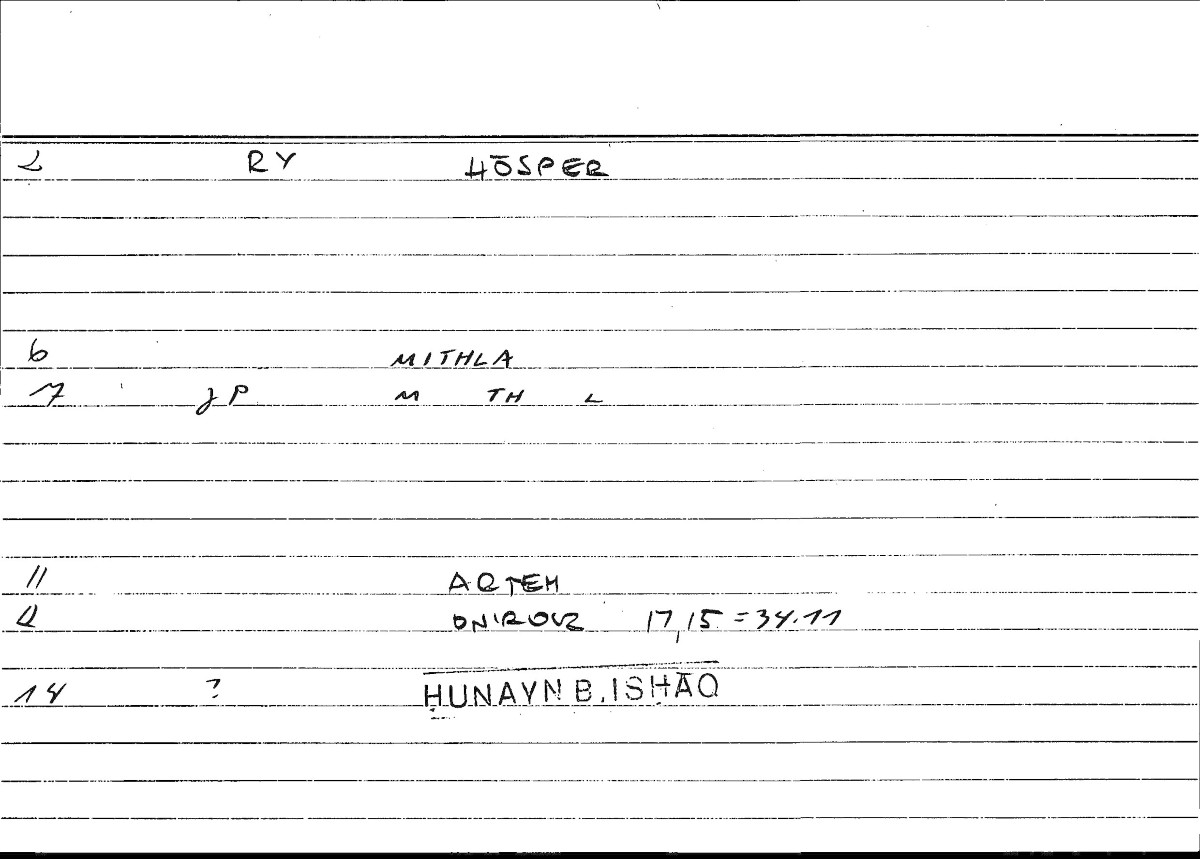 2 RY HŌSPER
6 MITHLA
7 JP M TH L
11 ARTEM
12 ONIROCR 17,15 = 34.11
14 ? ḤUNAYN B. ISḤĀQ